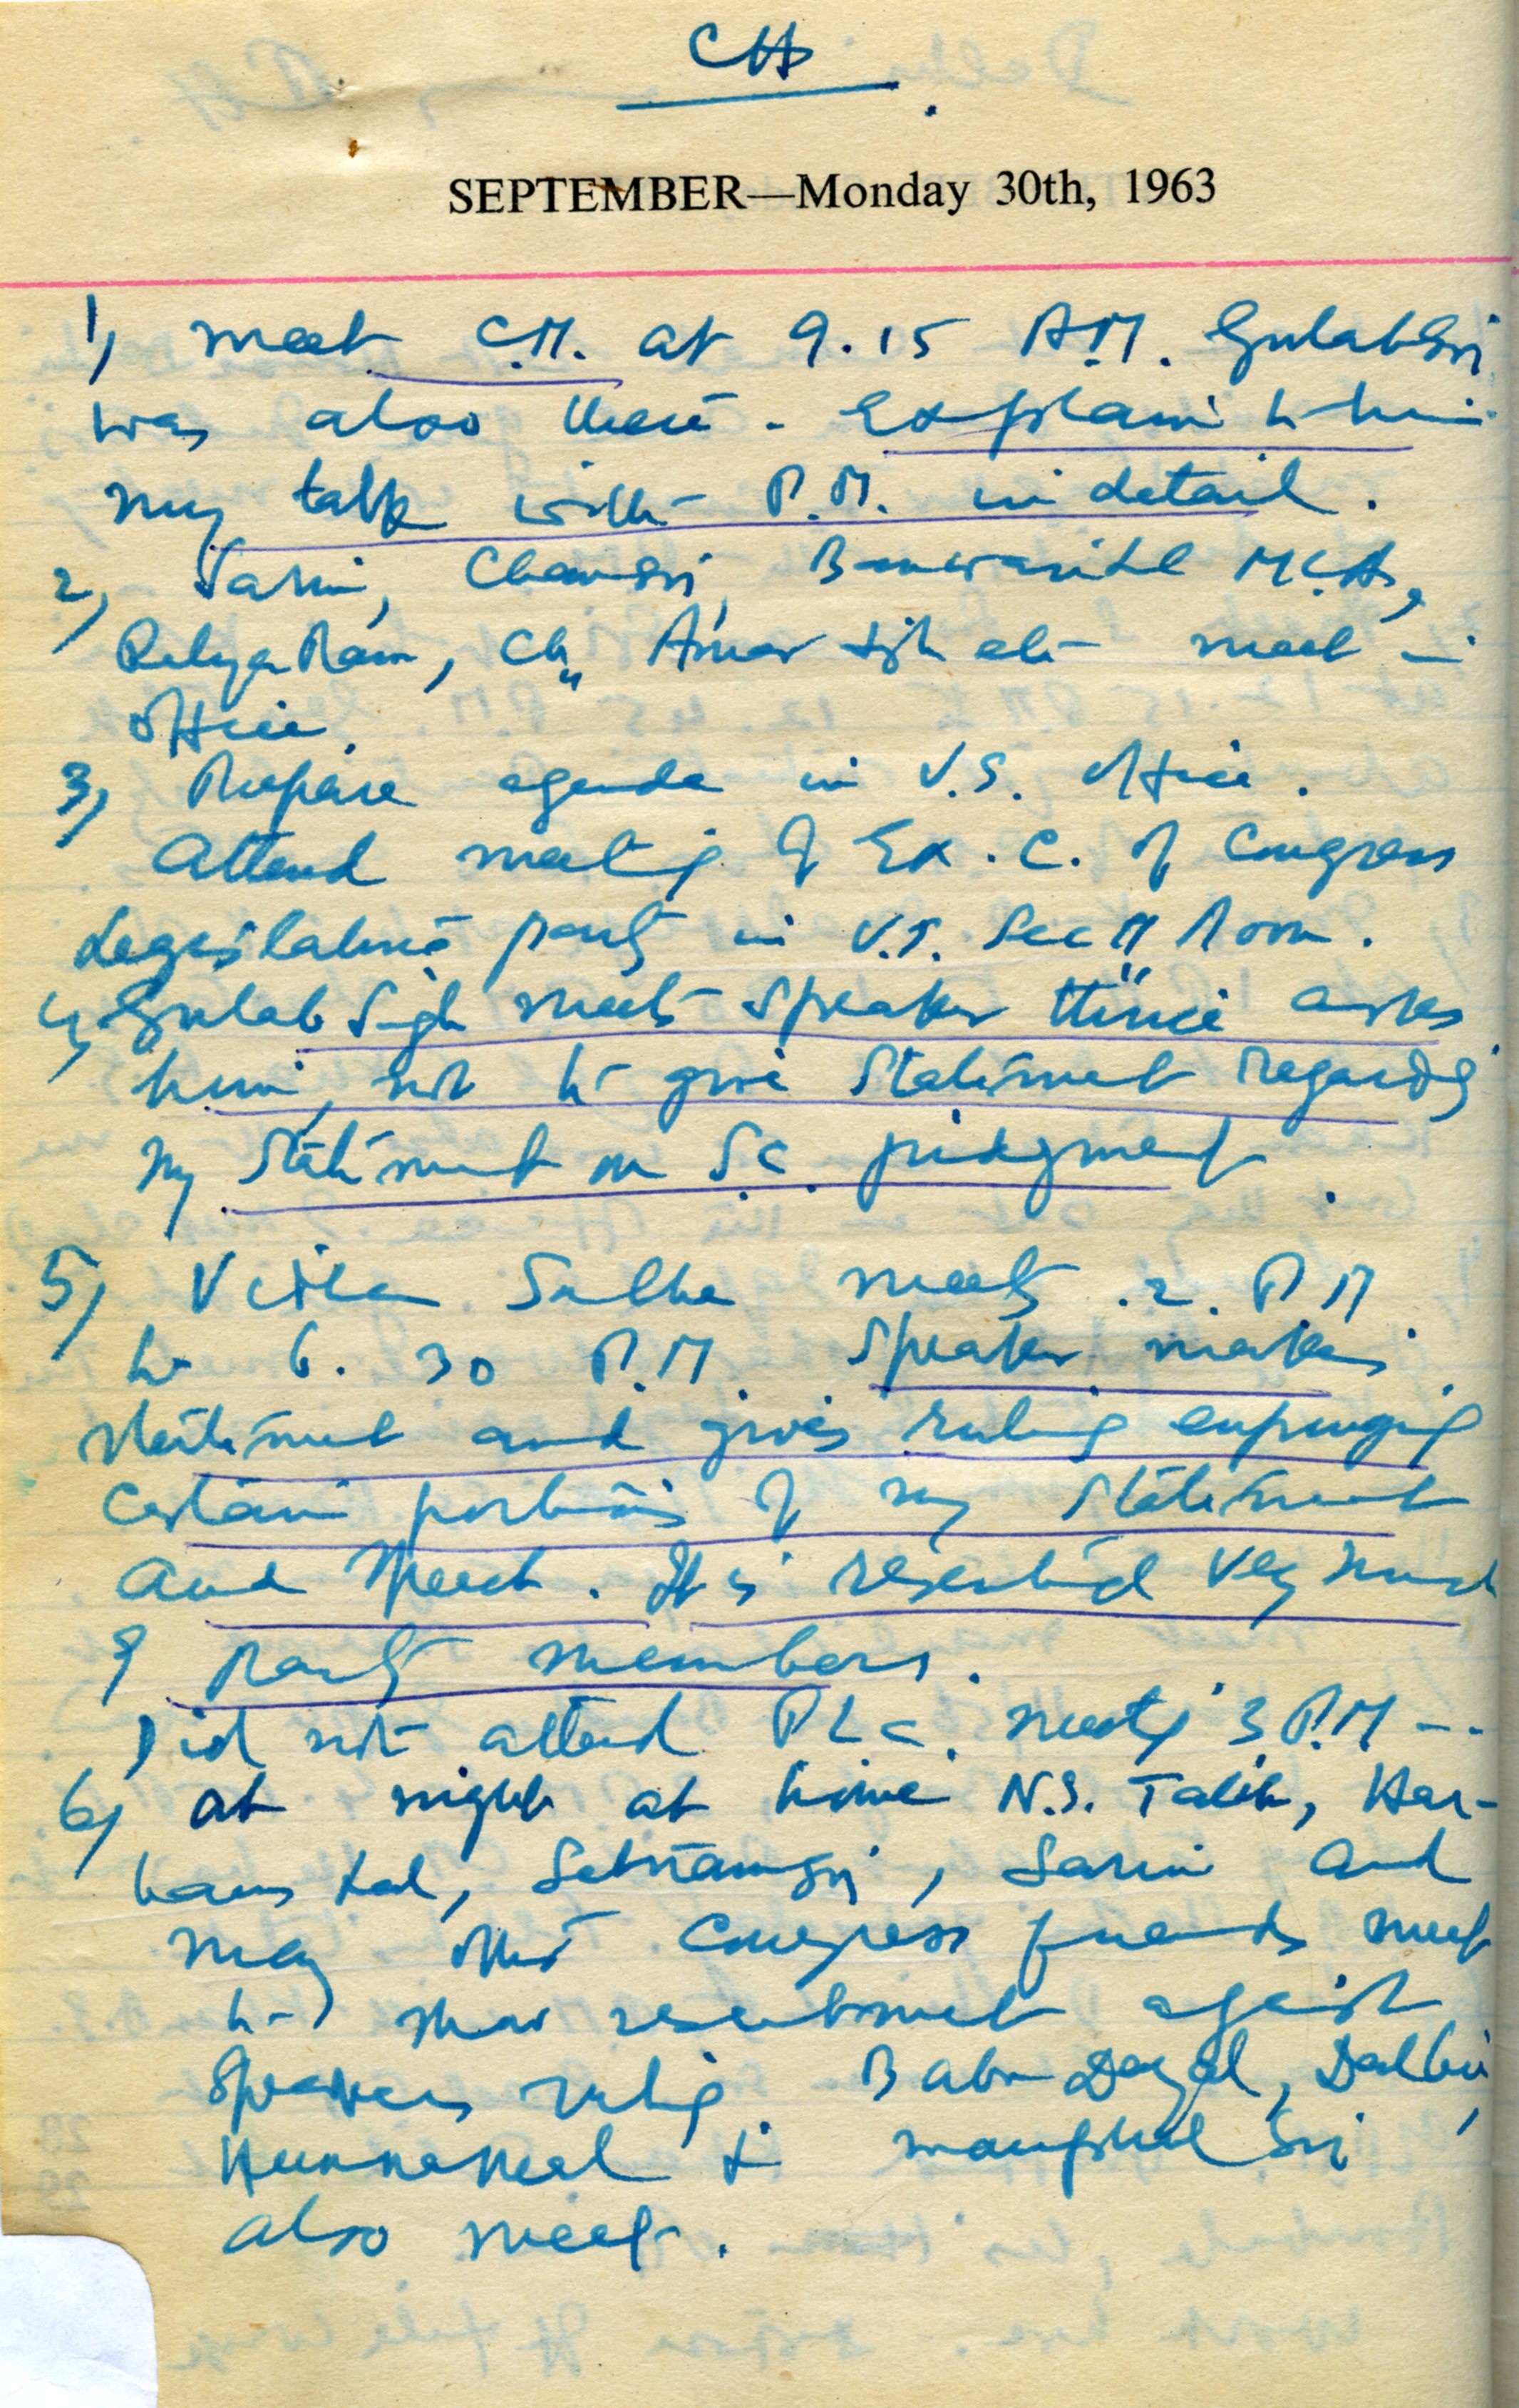 CH
SEPTEMBER—Monday 30th, 1963
1) meet C.M. at 9.15 A.M. Gulab Sri
was also there. Explain to him
my talk with P.M. in detail.
2) Sarin, Chan Sri, Banwarilal M.L.A.,
Ralya Ram, Ch. Amar etc meet in
office.
3) Prepare agenda in V.S. office.
Attend meeting of Ex. C. of Congress
Legislature party in V.S. Sectt Room.
4) Gulab Singh meets Speaker thrice asks
him, not to give statement regarding
my statement on S.C. judgment.
5) Vidhan Sabha meets 2. P.M.
to 6.30 P.M. Speaker makes
statement and gives ruling expunging
certain portions of my statement
and speech. It is resented very much
by party members.
Did not attend meeting 3 P.M --
6) at night at home N.S. Talib, Har-
bans Lal, Satnam Sri, Sarin and
many other Congress friends meet
to show resentment against
Speakers ruling. Babu Dayal, Dalbir,
Hunna Meal & Mangphul Sri
also meet.